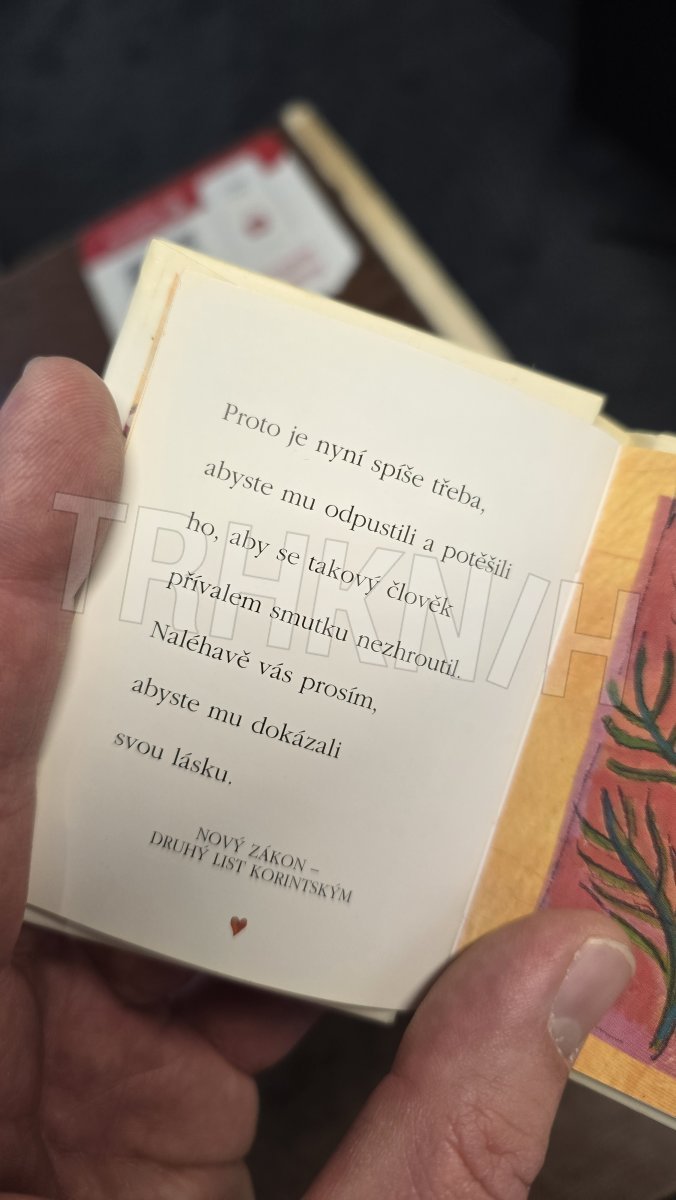 Proto je nyní spíše třeba,
abyste mu odpustili a potěšili
ho, aby se takový člověk
přívalem smutku nezhroutil.
Naléhavě vás prosím,
abyste mu dokázali
svou lásku.
NOVÝ ZÁKON –
DRUHÝ LIST KORINTSKÝM
TRHKN/H